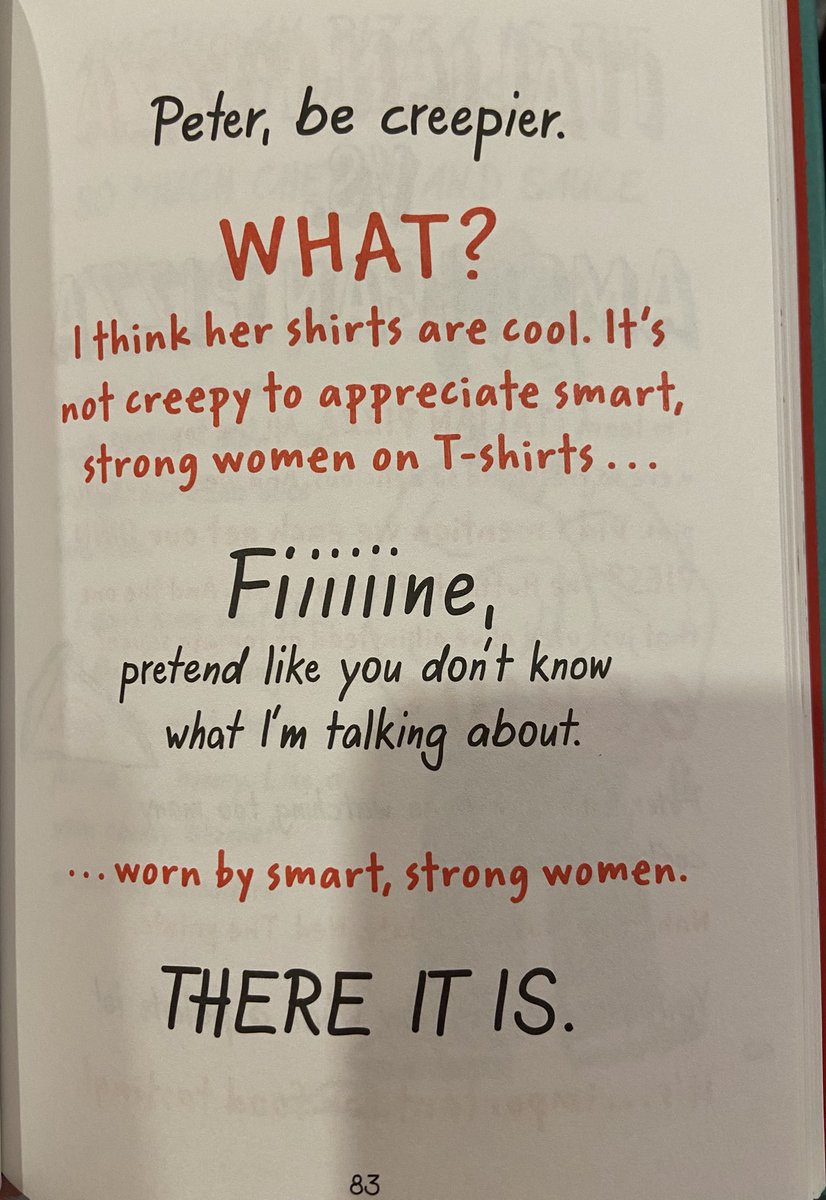 Peter, be creepier.
WHAT?
I think her shirts are cool. It's
not creepy to appreciate smart,
strong women on T-shirts...
Fiiiiiine,
pretend like you don't know
what I'm talking about.
...worn by smart, strong women.
THERE IT IS.
83